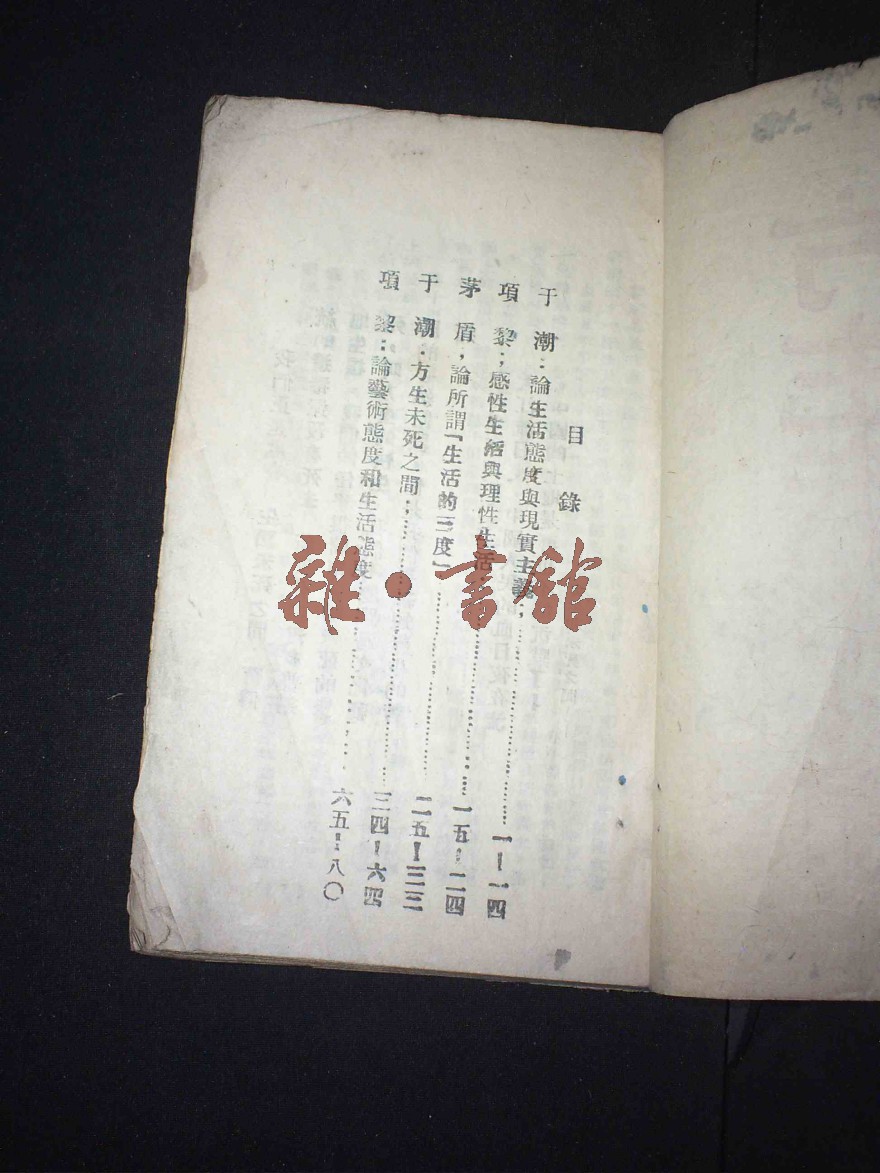 目錄
于潮：論生活態度與現實主義；……一－一四
項黎；感性生活與理性生活……一五－二四
茅盾，論所謂「生活的三度」……二五－三三
于潮：方生未死之間；……三四－六四
項黎：論藝術態度和生活態度……六五－八〇
雜·書館